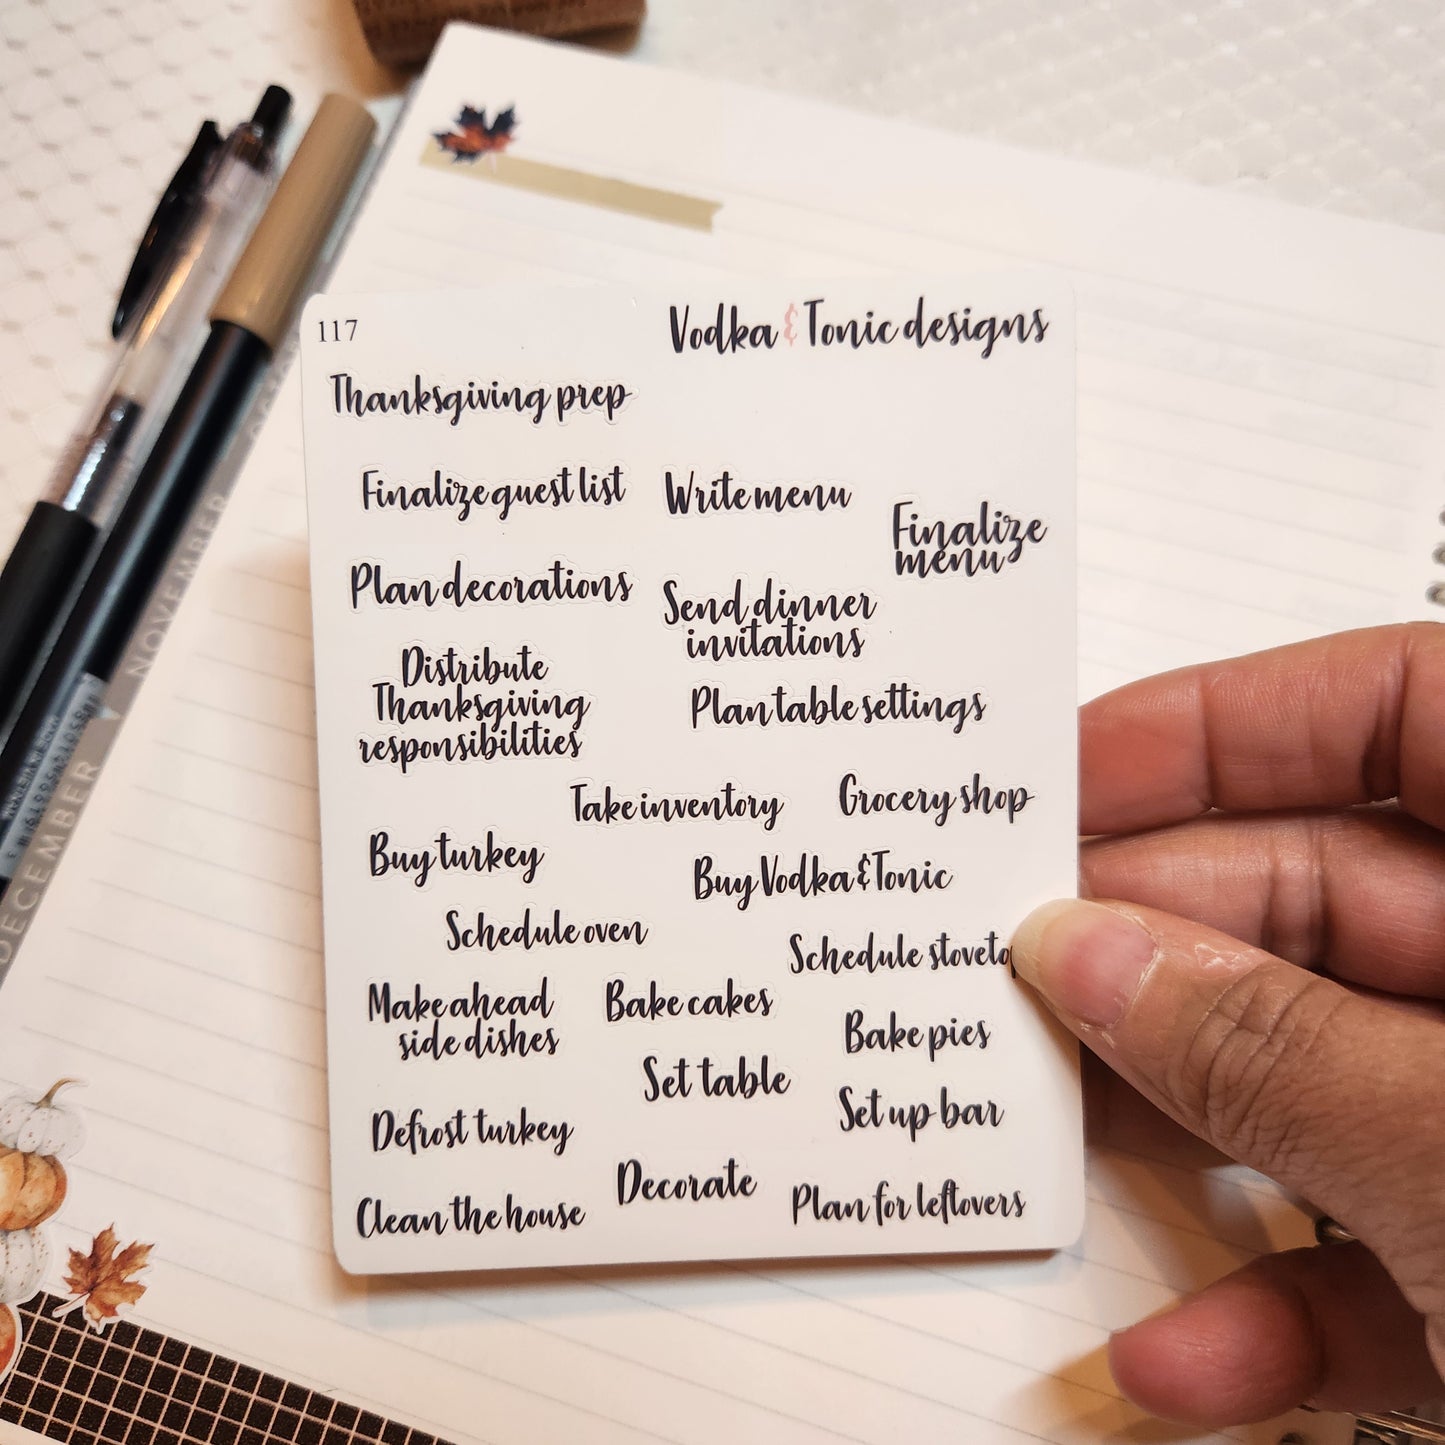 117
Vodka & Tonic designs
Thanksgiving prep
Finalize guest list
Write menu
Finalize
menu
Plan decorations
Send dinner
invitations
Distribute
Thanksgiving
responsibilities
Plan table settings
Take inventory
Grocery shop
Buy turkey
Buy Vodka & Tonic
Schedule oven
Schedule stoveto
Make ahead
side dishes
Bake cakes
Bake pies
Set table
Set up bar
Defrost turkey
Decorate
Clean the house
Plan for leftovers
NOVEMBER
DECEMBER